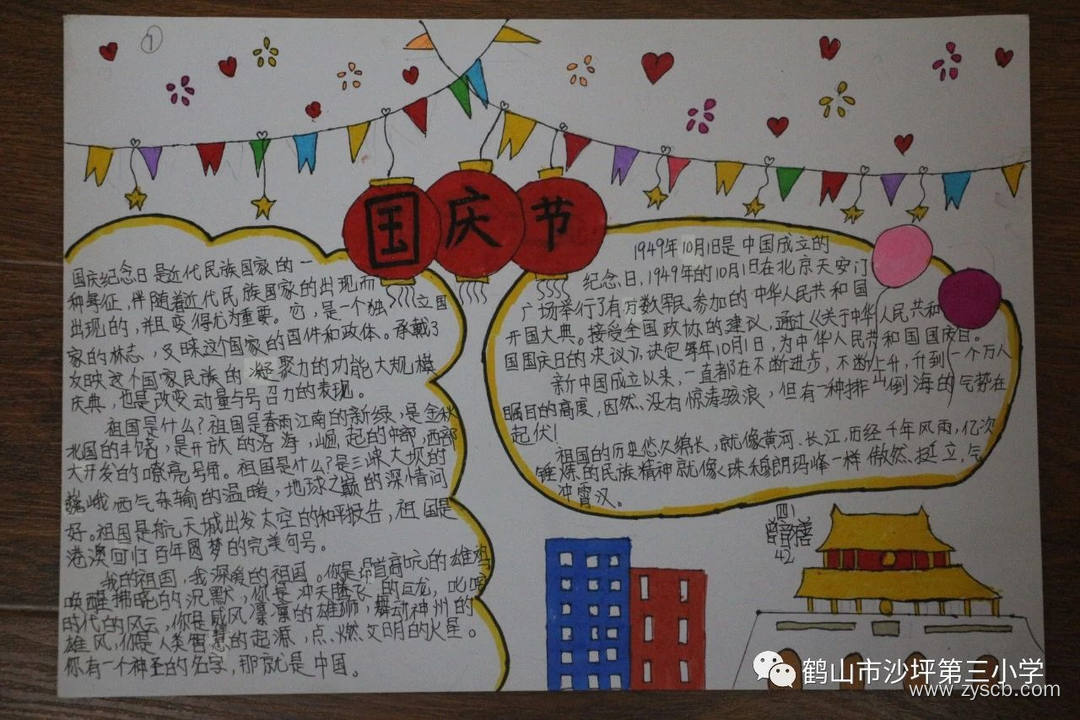 1
国庆节
国庆纪念日是近代民族国家的一
种特征,伴随着近代民族国家的出现而
出现的,并且变得尤为重要。它,是一个独立国
家的标志,反映这个国家的国体和政体。承载了
反映这个国家民族的凝聚力的功能大规模
庆典,也是改变动量与号召力的表现。
祖国是什么?祖国是春雨江南的新绿,是金秋
北国的丰饶,是开放的洛海,崛起的中部,西部
大开发的嘹亮号角。祖国是什么?是三峡大坝的
巍峨西气东输的温暖,地球之巅的深情问
好。祖国是航天城出发太空的和平报告,祖国是
港澳回归百年圆梦的完美句号。
我的祖国,我深爱的祖国。你是昂首高吭的雄鸡
唤醒拂晓的沉默,你是冲天腾飞的巨龙,叱咤
时代的风云,你是威风凛凛的雄狮,舞动神州的
雄风,你是人类智慧的起源,点燃文明的火星。
你有一个神圣的名字,那就是中国。
1949年10月1日是中国成立的
纪念日,1949年的10月1日在北京天安门
广场举行了有万数军民参加的中华人民共和国
开国大典。接受全国政协的建议,通过《关于中华人民共和
国国庆日的决议》,决定每年10月1日,为中华人民共和国国庆日。
新中国成立以来,一直都在不断进步,不断上升,升到一个万人
瞩目的高度,因然没有惊涛骇浪,但有一种排山倒海的气势在
起伏!
祖国的历史悠久绵长,就像黄河、长江,历经千年风雨,亿次
锤炼的民族精神就像珠穆朗玛峰一样傲然挺立,气
冲霄汉。
四1
42
鹤山市沙坪第三小学
www.zyscb.com